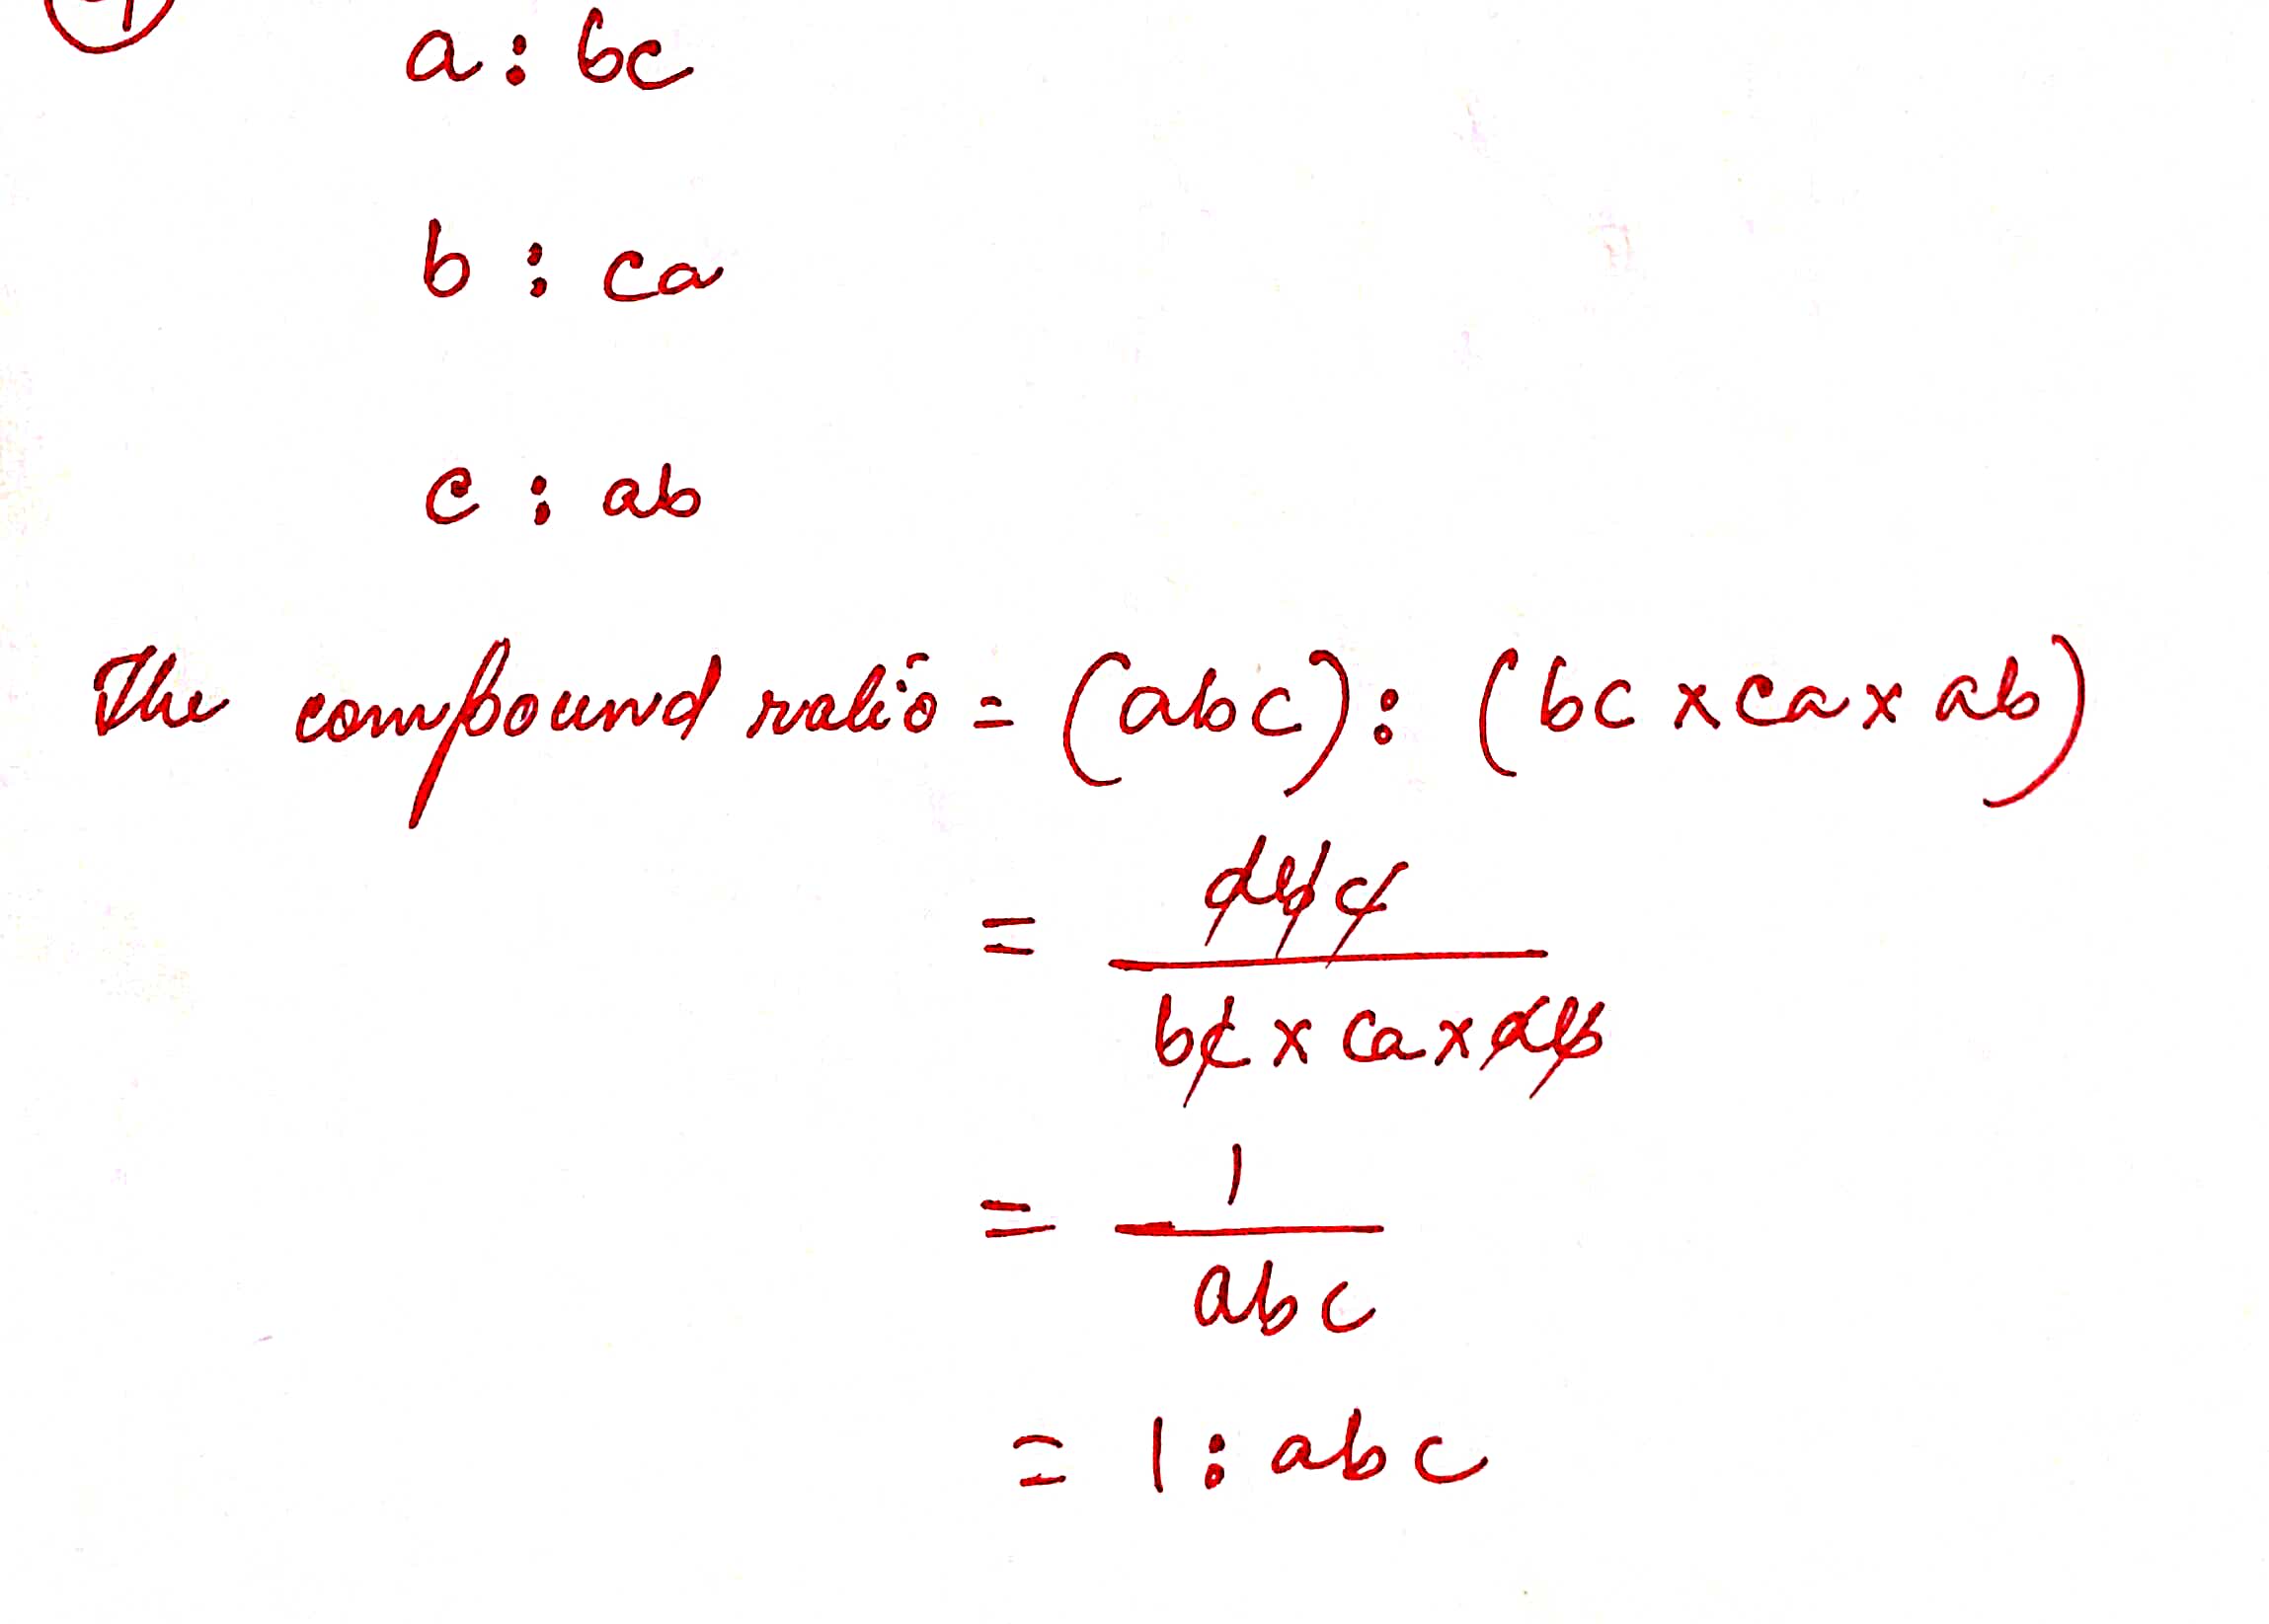 a : bc
b : ca
c : ab
The compound ratio = (abc) : (bc × ca × ab)
= abc / bc × ca × ab
= 1 / abc
= 1 : abc